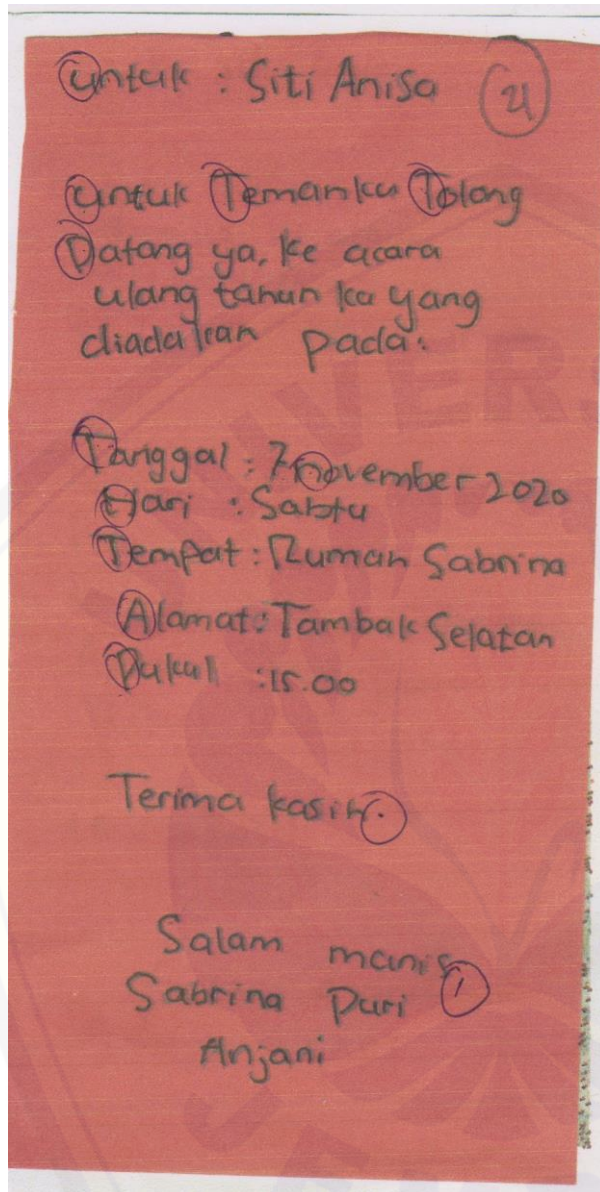 untuk : Siti Anisa
21
untuk Temanku Tolong
Datang ya, ke acara
ulang tahun ku yang
diadakan pada:
Tanggal : 7 november 2020
Hari : Sabtu
Tempat : Rumah Sabrina
Alamat : Tambak Selatan
Pukul : 15.00
Terima kasih.
Salam manis,
Sabrina Puri
Anjani